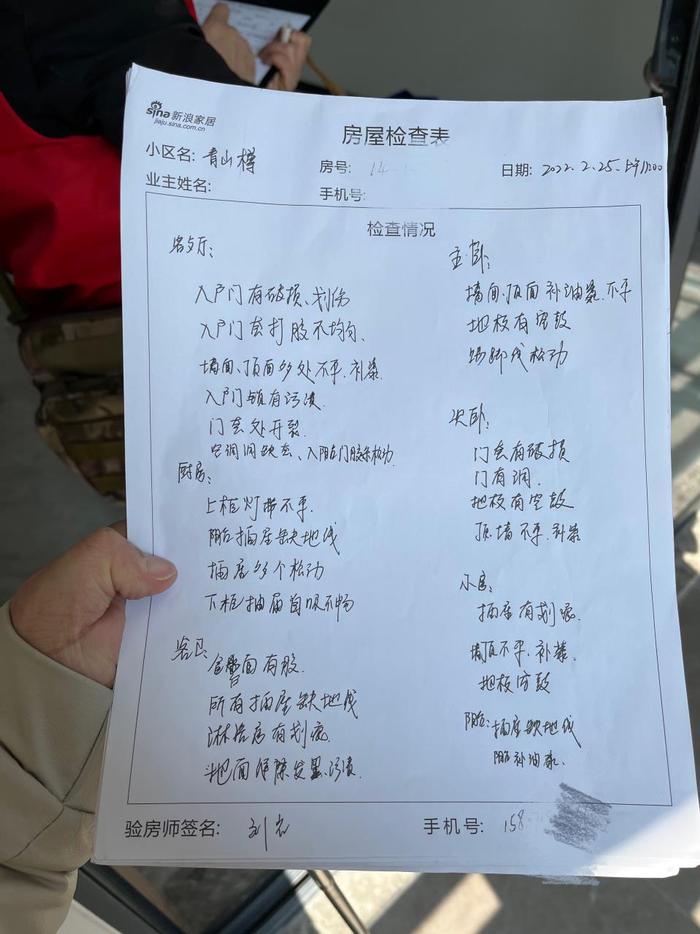 sina新浪家居
jiaju.sina.com.cn
房屋检查表
小区名: 青山樽 房号: 14 日期: 2022.2.25.上午11:00
业主姓名: 手机号:
检查情况
客餐厅:
入户门有破损、划伤
入户门套打胶不均匀.
墙面、顶面多处不平.补漆
入户门锁有污渍.
门套处开裂
空调洞缺盖、入阳台门胶条松动.
厨房:
上柜灯带不平.
阳台插座缺地线
插座多个松动
下柜抽屉自吸不畅
客卫:
台面有胶.
所有插座缺地线
淋浴房有划痕
地面缝隙发黑.污渍.
主卧:
墙面、顶面补油漆.不平
地板有空鼓
踢脚线松动
次卧:
门套有破损
门有洞.
地板有空鼓
顶.墙不平.补漆
小房:
插座有划痕
墙顶不平.补漆.
地板空鼓
阳台: 插座缺地线
阳台补油漆.
验房师签名: 手机号: 158